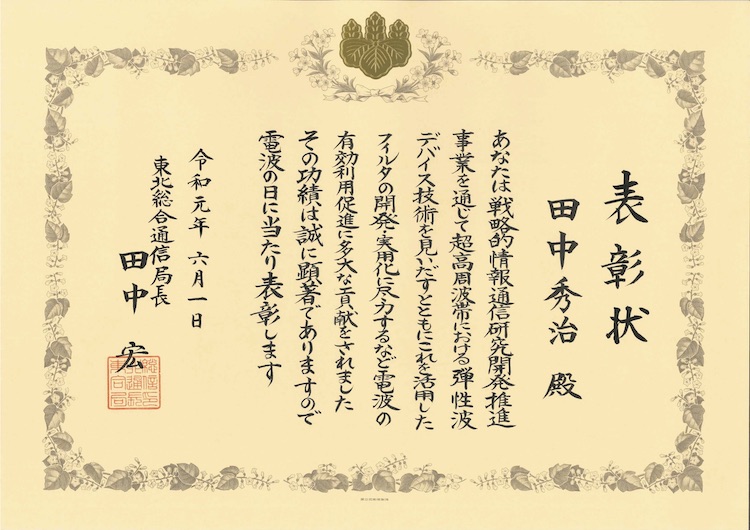 表彰状
田中秀治 殿
あなたは戦略的情報通信研究開発推進
事業を通じて超高周波帯における弾性波
デバイス技術を見いだすとともにこれを活用した
フィルタの開発・実用化に尽力するなど電波の
有効利用促進に多大な貢献をされました
その功績は誠に顕著でありますので
電波の日に当たり表彰します
令和元年 六月一日
東北総合通信局長
田中 宏